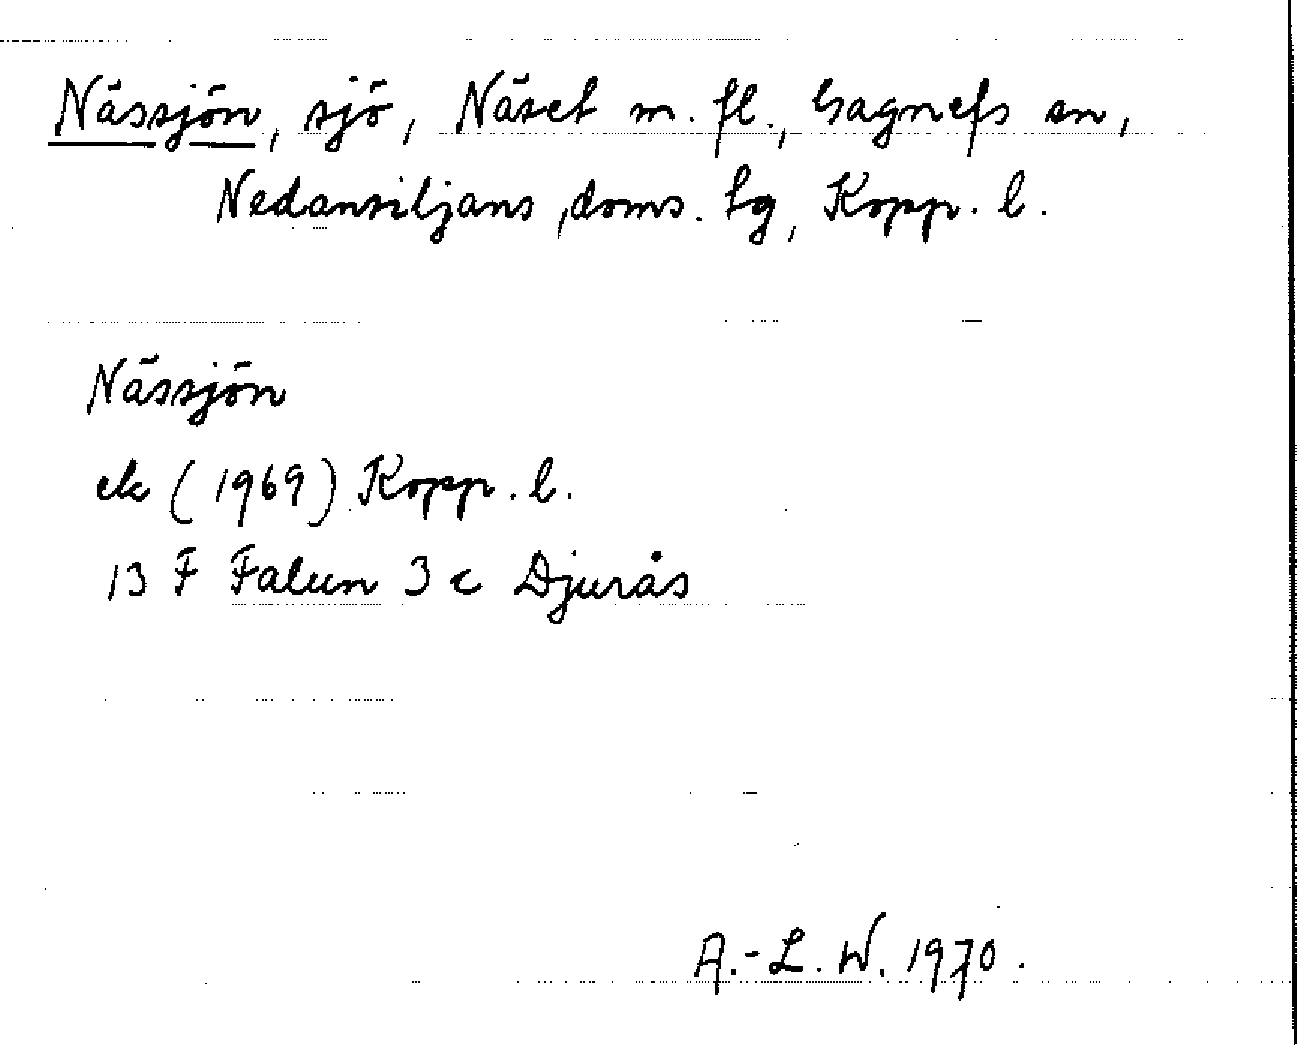 Nässjön, sjö, Näset m. fl., Gagnefs sn,
Nedansiljans doms. lg, Kopp. l.
Nässjön
ek (1969) Kopp. l.
13 F Falun 3 c Djurås
A.-L. W. 1970.